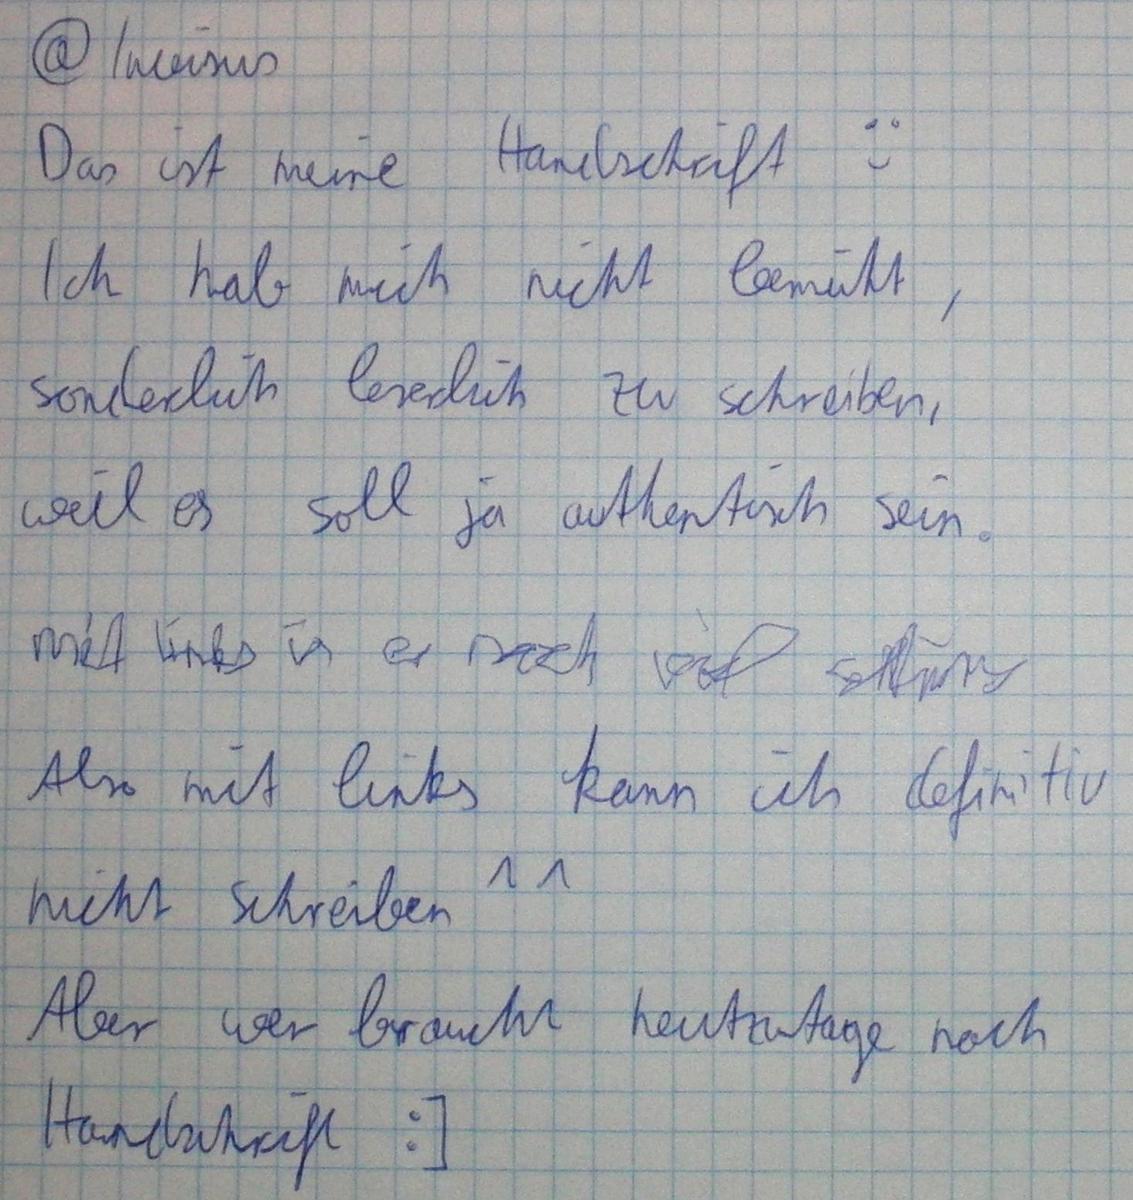 @
Das ist meine Handschrift :)
Ich hab mich nicht bemüht,
sonderlich leserlich zu schreiben,
weil es soll ja authentisch sein.
mit links is es noch viel
Also mit links kann ich definitiv
nicht schreiben ^^
Aber wer braucht heutzutage noch
Handschrift :]